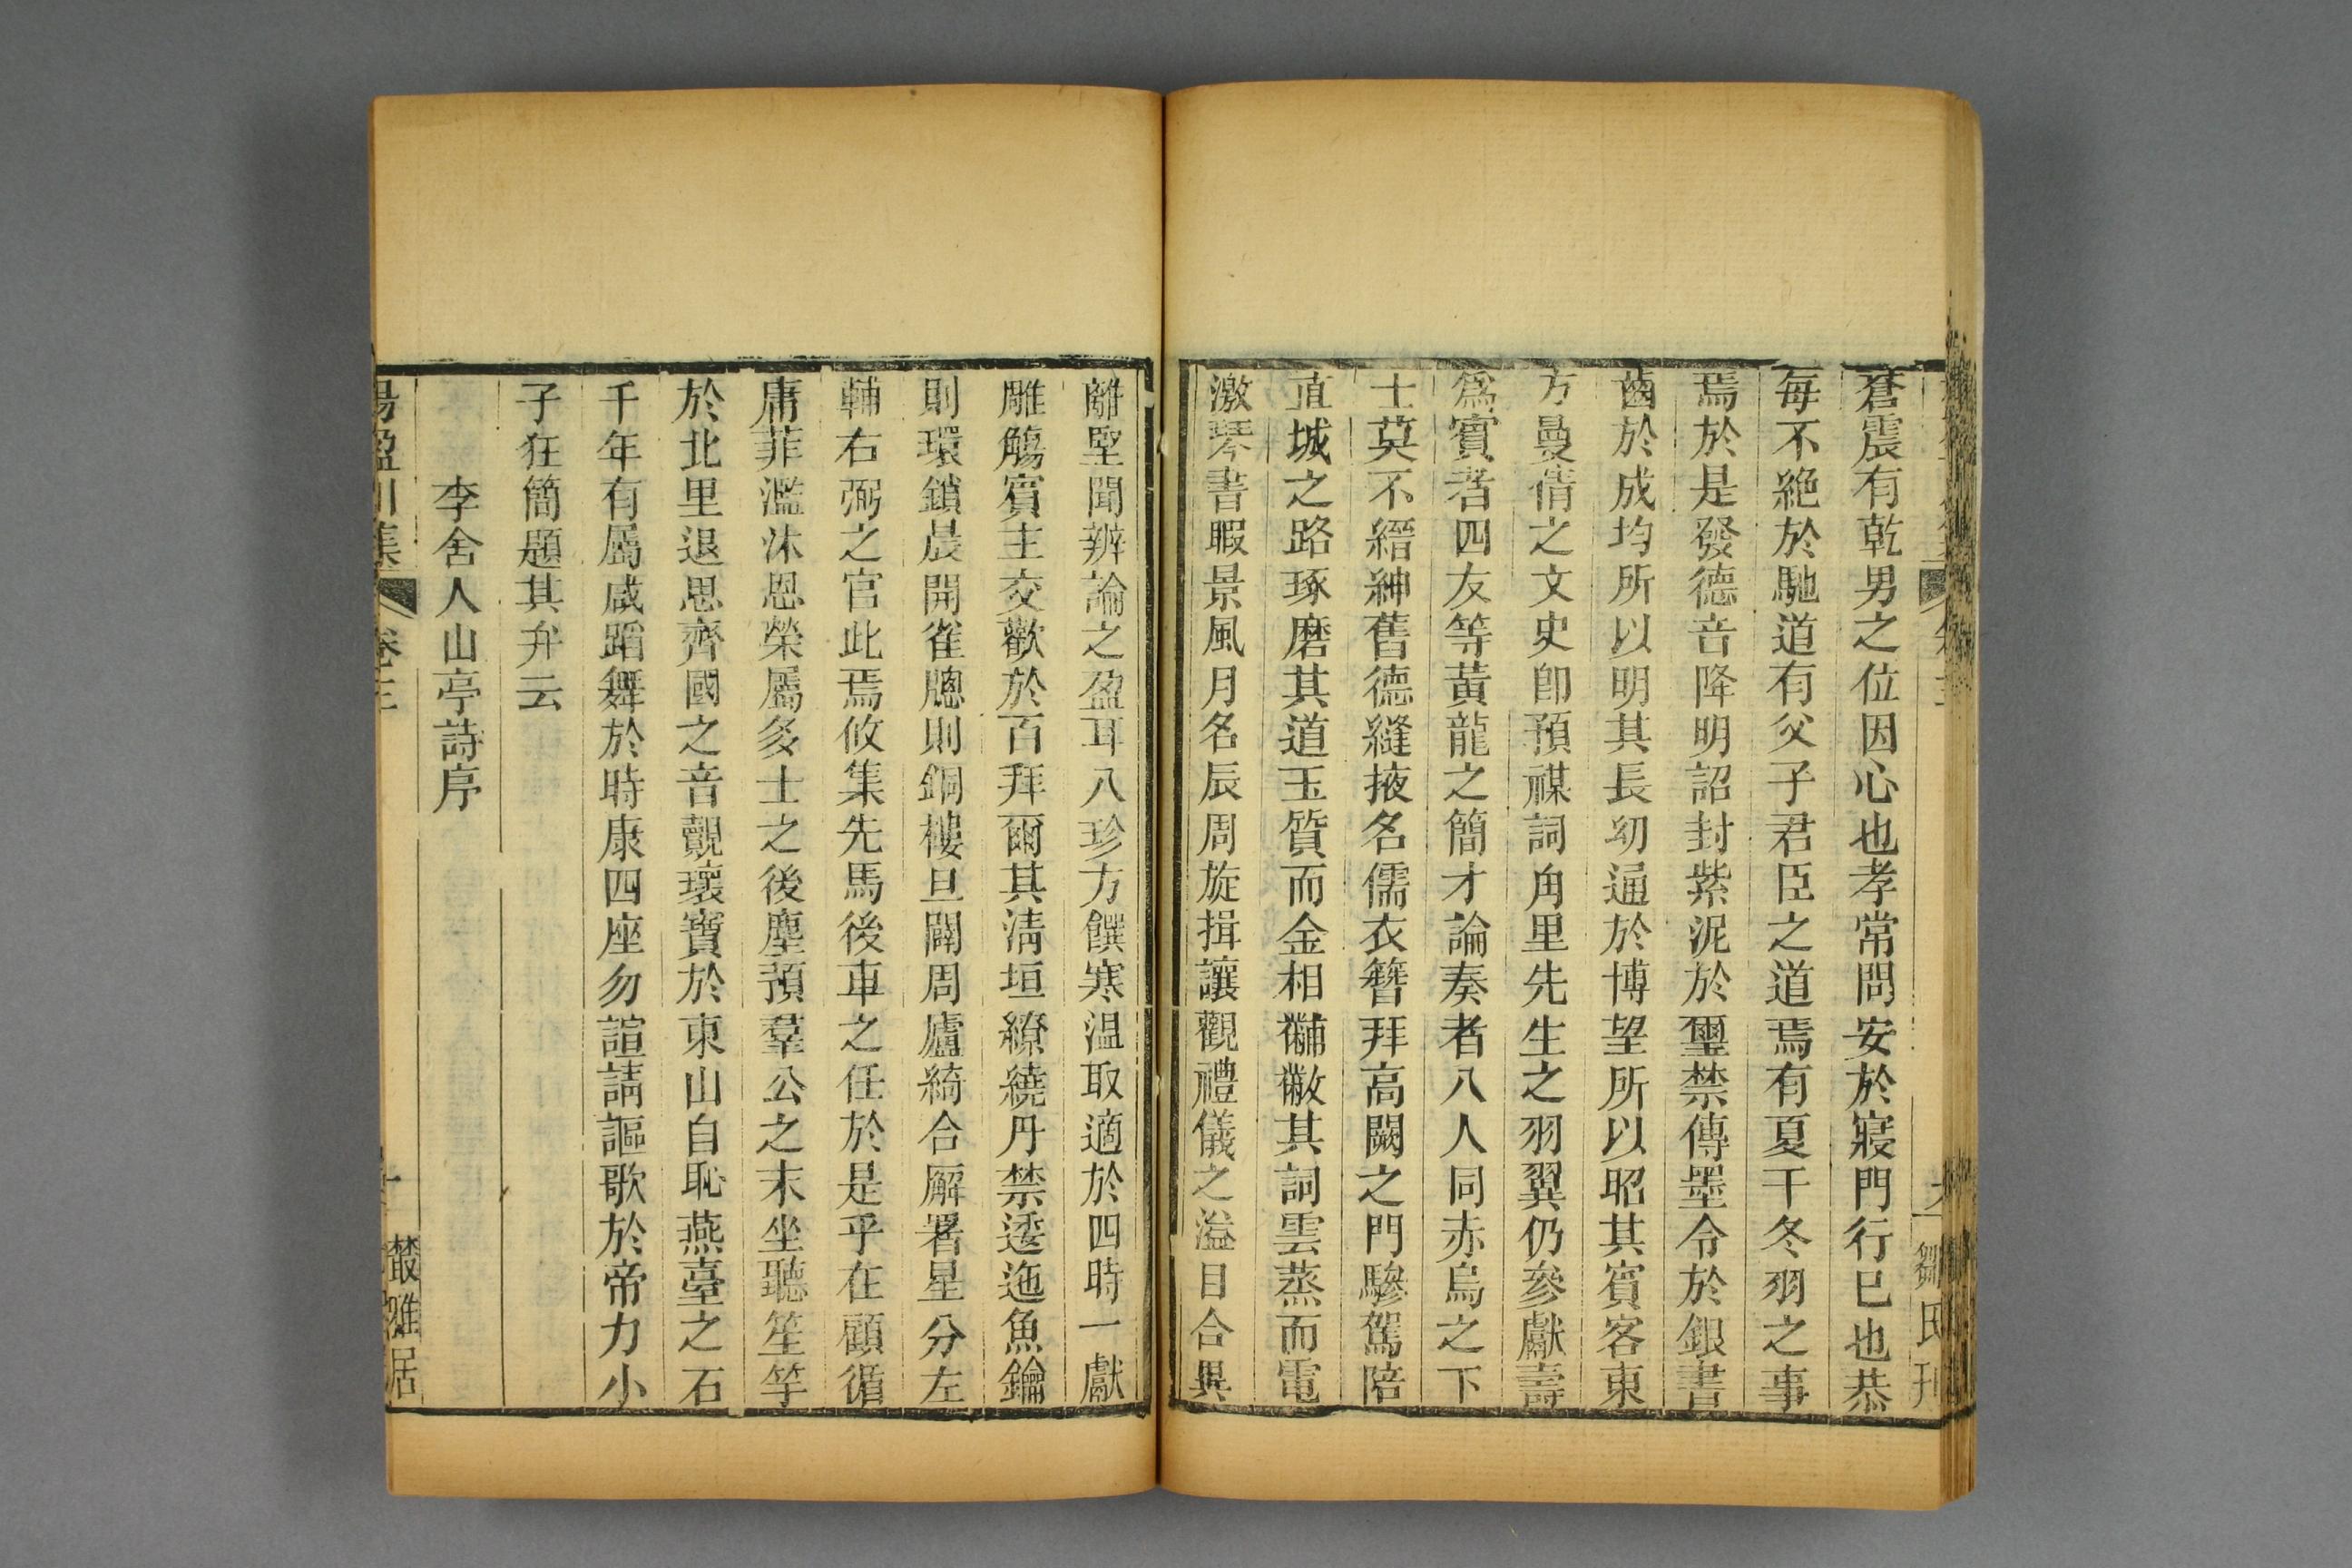 蒼震有乾男之位因心也孝常問安於寢門行已也恭
每不絶於馳道有父子君臣之道焉有夏干冬羽之事
焉於是發德音降明詔封紫泥於璽禁傳墨令於銀書
齒於成均所以明其長幼通於博望所以昭其賓客東
方曼倩之文史卽預禖詞角里先生之羽翼仍參獻壽
爲賓者四友等黃龍之簡才論奏者八人同赤烏之下
士莫不縉紳舊德縫掖名儒衣簪拜高闕之門驂駕陪
直城之路琢磨其道玉質而金相黼黻其詞雲蒸而電
激琴書暇景風月名辰周旋揖讓觀禮儀之溢目合異
離堅聞辨論之盈耳八珍方饌寒温取適於四時一獻
雕觴賓主交歡於百拜爾其淸垣繚繞丹禁逶迤魚鑰
則環鎖晨開雀牕則銅樓旦闢周廬綺合廨署星分左
輔右弼之官此焉攸集先馬後車之任於是乎在顧循
庸菲濫沐恩榮屬多士之後塵預羣公之末坐聽笙竽
於北里退思齊國之音覿瓌寶於東山自恥燕臺之石
千年有屬咸蹈舞於時康四座勿諠請謳歌於帝力小
子狂簡題其弁云
李舍人山亭詩序
楊盈川集 卷三 十 叢雅居